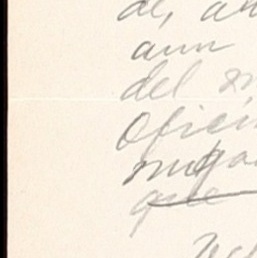 de, an
aun
del m
Oficin
que